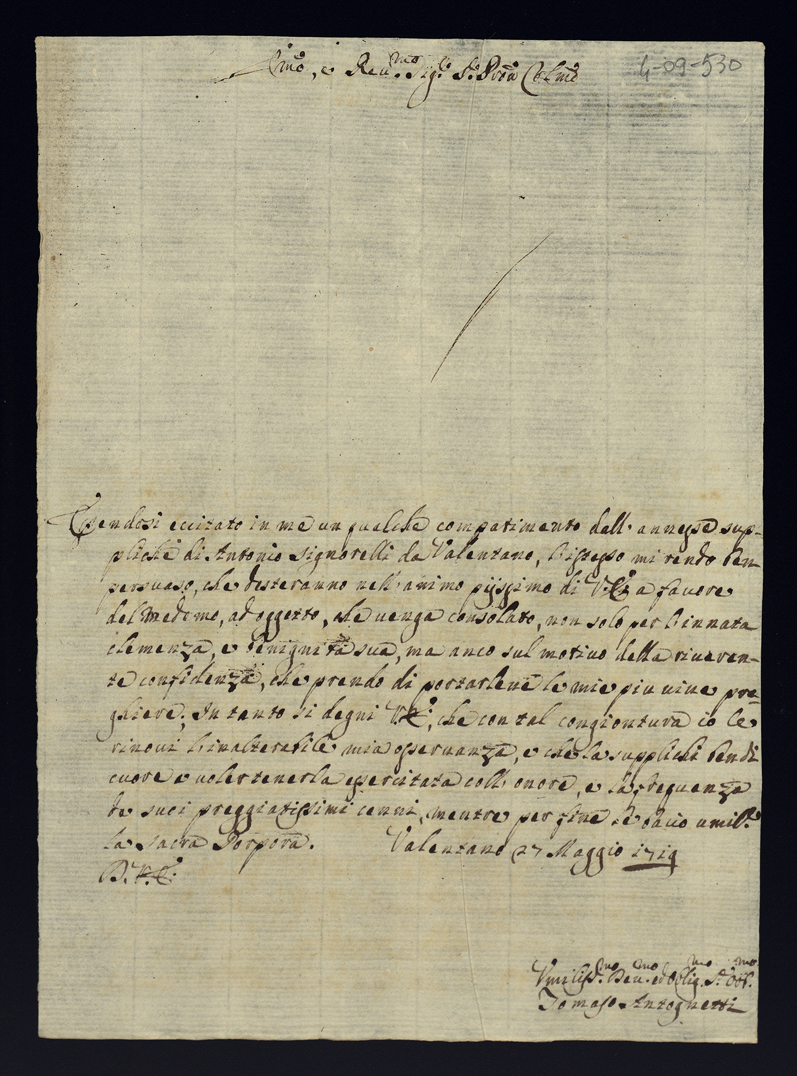 Em̃o, e Reu.mo Sig.r S.r Pron̄ Col.mo
4-09-530
Essendosi eccitato in me un qualche compatimento dell'annesse sup-
pliche di Antonio Signorelli da Valentano, l'istesso mi rendo ben
persuaso, che desteranno nell'animo pijssimo di V. E. a favore
del medemo, ad oggetto, che venga consolato, non solo per l'innata
clemenza, e benignità sua, ma anco sul motivo della riueren-
te confidenza, che prendo di portarlene le mie piu viue pre-
ghiere; In tanto si degni V. E., che con tal congiontura io le
rinoui l'inalterabile mia osseruanza, e che la supplichi ben di
cuore a volertenerla essercitata coll'onore, e la frequenza
de suoi preggiatissimi cenni, mentre per fine le bacio umil.e
la sacra Porpora. Valentano 27 Maggio 1719
D. V. E.
Vmiliss.mo Deu.mo ed Oblig.mo S.re
Tomaso Antognetti